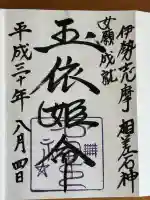 伊勢志摩 相差石神
女願成就
玉依姫命
平成三十年八月四日